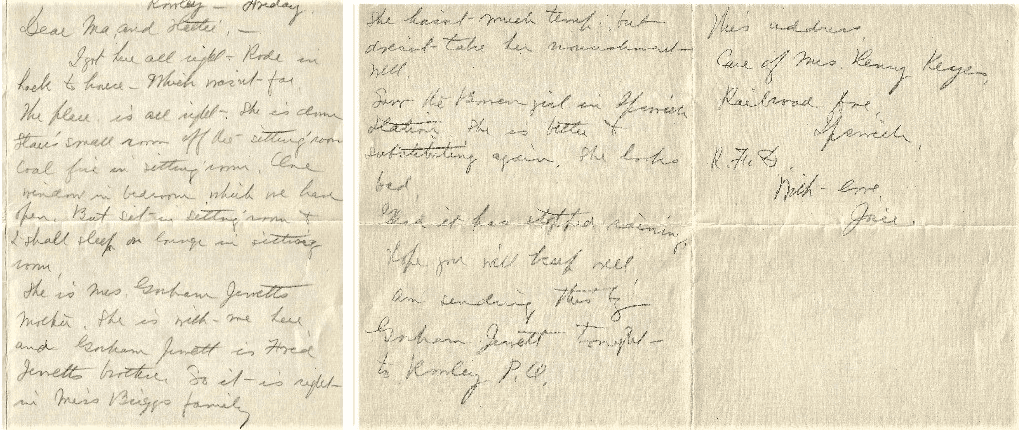 Rowley - Friday.
Dear Ma and Hattie, -
I got here all right - Rode in
hack to house - Which wasn't far
The place is all right - She is down
stairs small room off the sitting room
Coal fire in sitting room. One
window in bedroom which we have
open. But sit in sitting room &
I shall sleep on lounge in sitting
room.
She is Mrs Gorham Jewetts
Mother. She is with me here
and Gorham Jewett is Fred
Jewetts brother. So it is right
in Miss Briggs family
She hasn't much temp. but
doesn't take her nourishment
well
Saw the girl in Ipswich
station. She is better &
substituting again. She looks
bad
it has stopped raining
Hope you will keep well
am sending this by
Gorham Jewett tonight -
to Rowley P.O.
This address
Care of Mrs. Henry Keyes,
Railroad Ave,
Ipswich,
R.F.D.
With - love